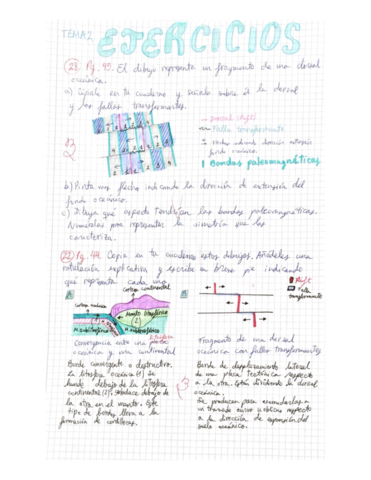 TEMA 2 EJERCICIOS
(28. Pg. 45. El dibujo representa un fragmento de una dorsal
oceánica.
a) Cópialo en tu cuaderno y señala sobre él la dorsal
y las fallas transformantes.
Dorsal (Rift)
Falla transformante
Bandas paleomagnéticas
b) Pinta una flecha indicando la dirección de extensión del
fondo oceánico.
c) Dibuja qué aspecto tendrían las bandas paleomagnéticas.
Numéralas para representar la simetría que las
caracteriza.
(22) Pg. 44. Copia en tu cuaderno estos dibujos. Añádeles una
rotulación explicativa y escribe un breve pie indicando
qué representa cada uno.
Corteza continental
Corteza oceánica
Manto litosférico
Rift
Falla
transformante
Convergencia entre una placa
oceánica y una continental
Borde convergente o destructivo.
La litosfera oceánica (1) se
hunde debajo de la litosfera
continental (2)
la otra en el manto. Este
tipo de bordes lleva a la
formación de cordilleras.
Fragmento de una dorsal
oceánica con fallas transformantes
Borde de desplazamiento lateral
de una placa tectónica respecto
a la otra. Están dividiendo la dorsal
oceánica.
Se producen para acomodarlas a
a la dirección de expansión del
suelo oceánico.